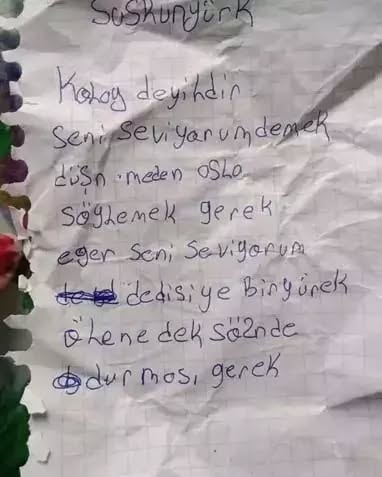 Suskunyürk
Kolay deyihdir
seni seviyorumdemek
düşn meden osla
söylemek gerek
eger seni seviyorum
dedisiye biryürek
ölene dek söznde
durmosı gerek